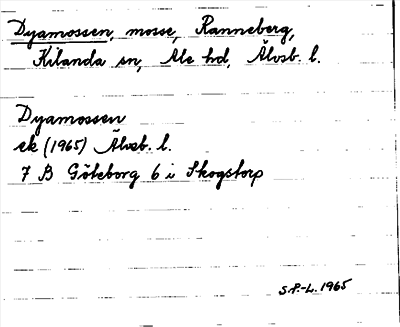 Dyamossen, mosse, Ranneberg,
Kilanda sn, Ale hd, Älvsb. l.
Dyamossen
ek (1965) Älvsb. l.
7 B Göteborg 6 i Skogstorp
S.P.-L. 1965